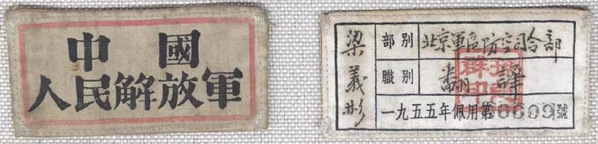 中國
人民解放軍
梁義彬
部别 北京軍區防空司令部
職别 翻譯
一九五五年佩用第00609號